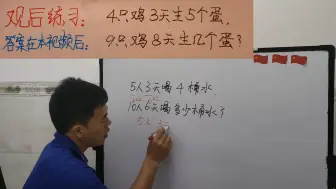 观后练习:4只鸡3天生5个蛋,
答案在本视频后:9只鸡8天生几个蛋?
5人3天喝4桶水
10人6天喝多少桶水?
5人3天